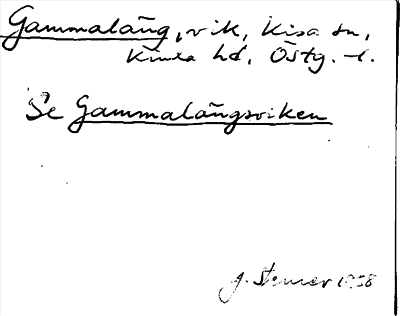 Gammaläng, vik, Kisa sn,
Kinda hd, Östg. l.
Se Gammalängsviken
1958